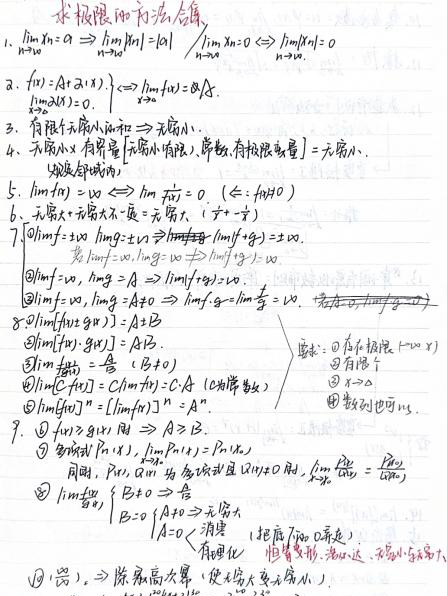 求极限的方法合集
1. lim_{n→∞} xn = a ⇒ lim_{n→∞} |xn| = |a| / lim_{n→∞} xn = 0 ⇔ lim_{n→∞} |xn| = 0
2. f(x) = A + α(x). lim_{x→0} α(x) = 0. } ⇔ lim_{x→0} f(x) = A.
3. 有限个无穷小的和 ⇒ 无穷小.
4. 无穷小 × 有界量 [无穷小(有限)、常数、有极限变量] = 无穷小.
邻域内
5. lim f(x) = ∞ ⇔ lim 1/f(x) = 0 (⇐: f(x)≠0)
6. 无穷大 + 无穷大 不一定 = 无穷大
7. ① lim f = ±∞ lim g = ±∞ ⇒ lim(f+g) = ±∞.
若 lim f = ∞, lim g = ∞ ⇏ lim(f+g) = ∞.
② lim f = ∞, lim g = A ⇒ lim(f+g) = ∞.
③ lim f = ∞, lim g = A≠0 ⇒ lim f·g = lim f/g = ∞.
8. ① lim[f(x)±g(x)] = A±B
② lim[f(x)·g(x)] = AB.
③ lim f(x)/g(x) = A/B (B≠0)
④ lim[C f(x)] = C lim f(x) = C·A (C为常数)
⑤ lim[f(x)]^n = [lim f(x)]^n = A^n.
要求: ① 存在极限 (−∞ x)
② 有限个
③ x→△
④ 数列也可
9. ① f(x) ≥ g(x) 时 ⇒ A ≥ B.
② 多项式 Pn(x), lim_{x→x0} Pn(x) = Pn(x0)
同时, P(x), Q(x) 为多项式且 Q(x)≠0 时, lim_{x→x0} P(x)/Q(x) = P(x0)/Q(x0)
③ lim f(x)/g(x) { B≠0 ⇒ A/B
B=0 { A≠0 ⇒ 无穷大
A=0 < 消零
有理化 (把底下的0弄走)
恒等变形、洛必达、无穷小与无穷大
⇒ 除最高次幂 (使无穷大变无穷小).